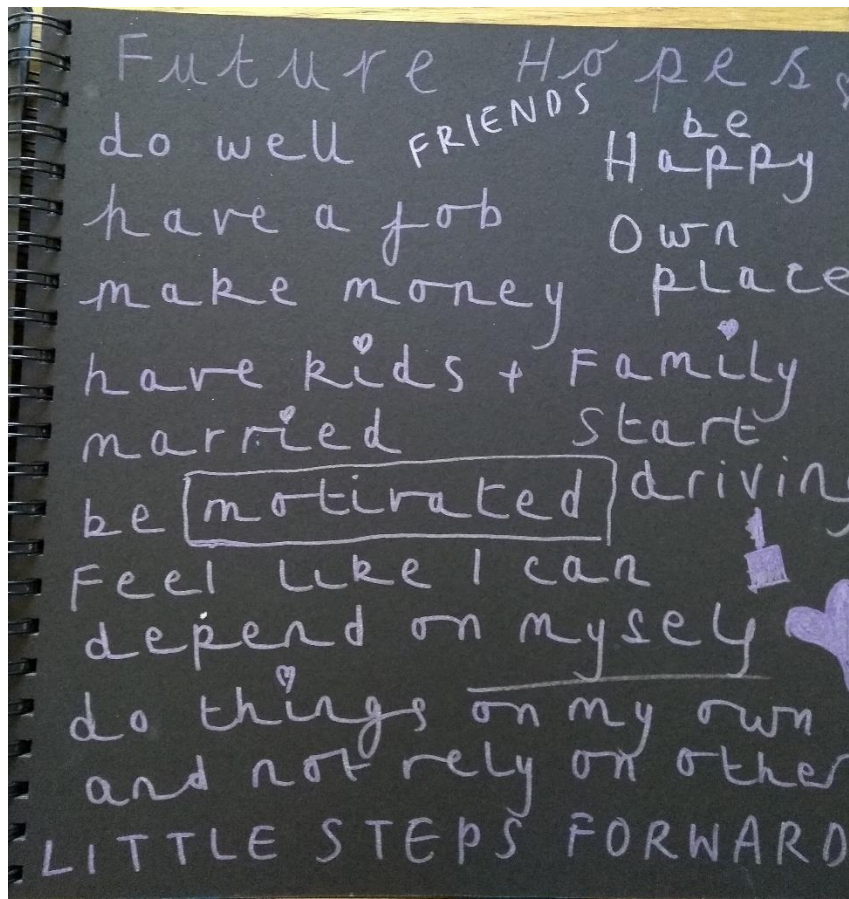 Future Hopes
do well FRIENDS be Happy
have a job Own
make money place
have kids + Family
married Start
be motivated driving
Feel like I can
depend on myself
do things on my own
and not rely on other
LITTLE STEPS FORWARD